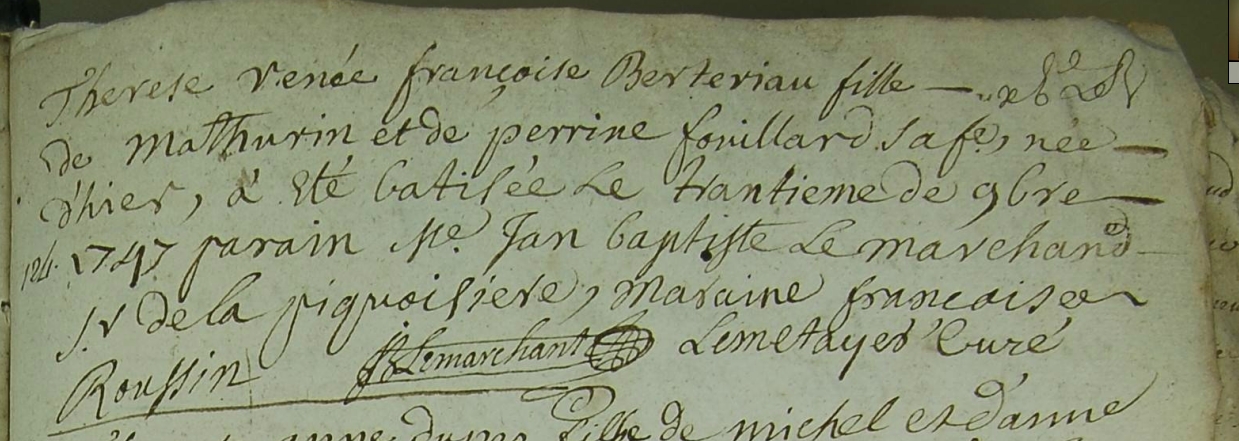 Therese renée françoise Berteriau fille
de Mathurin et de perrine fouillard sa fe, née
d'hier, à Eté batisée Le trantieme de 9bre
124. 1747 parain Me. Jan baptiste Le marchand
s.r de la piquoisiere, maraine francoise
Roussin JB Lemarchant Lemetayer Curé
anne fille de michel et d'anne